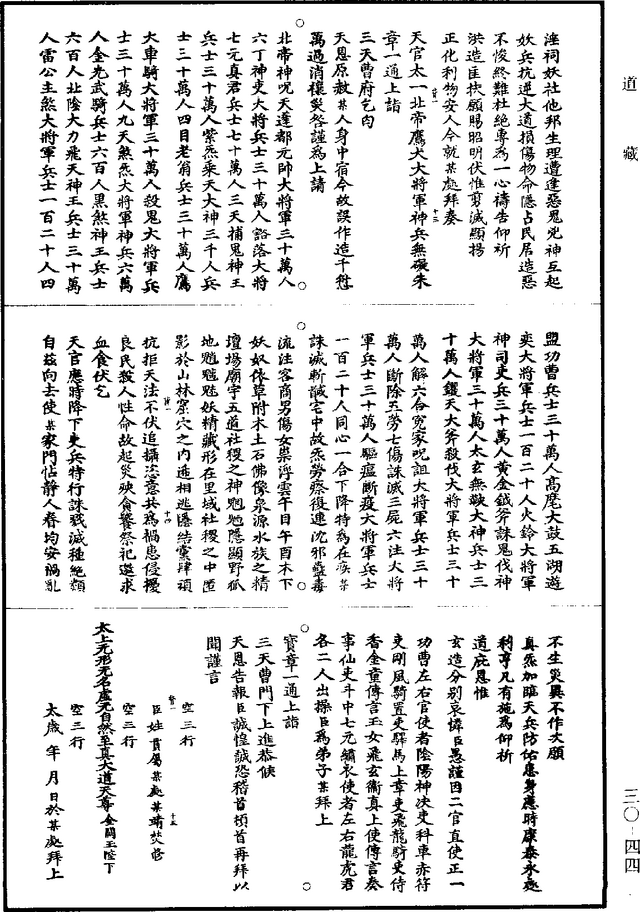 道藏
淫祠妖社他邦生理遭逢惡鬼兇神互起
妖兵抗逆大道損傷物命隱占民居造惡
不悛終難杜絕專為一心禱告仰祈
洪造匡扶願賜昭明伏惟剪滅顯揚
正化利物安人今就某處拜奏
天官太一北帝鷹犬大將軍神兵無礙朱
章一通上詣
三天曹府乞匃
天恩原赦某人身中宿今故誤作造千愆
萬過消穰災咎謹為上請
北帝神呪天蓬都元帥大將軍三十萬人
六丁神吏大將兵士三十萬人豁落大將
七元真君兵士七十萬人三天捕鬼神王
兵士三十萬人紫炁乘天大神三千人兵
士三十萬人四目老翁兵士三十萬人鷹
犬車騎大將軍三十萬人殺鬼大將軍兵
士三十萬人九天煞炁大將軍神兵六萬
人金光武騎兵士六百人黑煞神王兵士
六百人北陰大力飛天神王兵士三十萬
人雷公主煞大將軍兵士一百二十人四
盟功曹兵士三十萬人高麾大鼓五湖遊
奕大將軍兵士一百二十人火鈴大將軍
神司吏兵三十萬人黃金鉞斧誅鬼伐神
大將軍三十萬人太玄無敵大神兵士三
十萬人鑊天大斧殺伐大將軍兵士三十
萬人解六合冤家呪詛大將軍兵士三十
萬人斷除五勞七傷誅滅三屍六注大將
軍兵士三十萬人驅瘟斷疫大將軍兵士
一百二十人同心一合下降特為在疾某
誅滅斬馘宅中故炁勞瘵復連沈邪蠱毒
流注客商男傷女祟浮雲午日午酉木下
妖奴依草附木土石佛像泉源水族之精
壇場廟宇五道社稷之神魍魎隱顯野狐
地魈魑魅妖精藏形在里域社稷之中匿
影於山林窠穴之內遞相逃隱結黨肆頑
抗拒天法不伏追攝恣意共為禍患侵擾
良民殺人性命故起災殃貪饕祭祀邀求
血食伏乞
天官應時降下吏兵特行誅戮滅種絕類
自茲向去使某家門怗靜人眷均安禍亂
不生災異不作次願
真炁加臨天兵防佑患身應時康泰永處
利亨凡有施為仰祈
道庇恩惟
玄造分別哀憐臣愚謹因二官直使正一
功曹左右官使者陰陽神決吏科車赤符
吏剛風騎置吏驛馬上章吏飛龍騎吏侍
香金童傳言玉女飛玄衞真上使傳言奏
事仙吏斗中七元繡衣使者左右龍虎君
各二人出操臣為弟子某拜上
寶章一通上詣
三天曹門下上進恭候
天恩告報臣誠惶誠恐稽首頓首再拜以
聞謹言
空三行
臣姓貫屬某處某靖焚修
空三行
太上无形无名虛无自然至真大道天尊金闕玉陛下
空三行
太歲年月日於某處拜上
三〇-四四